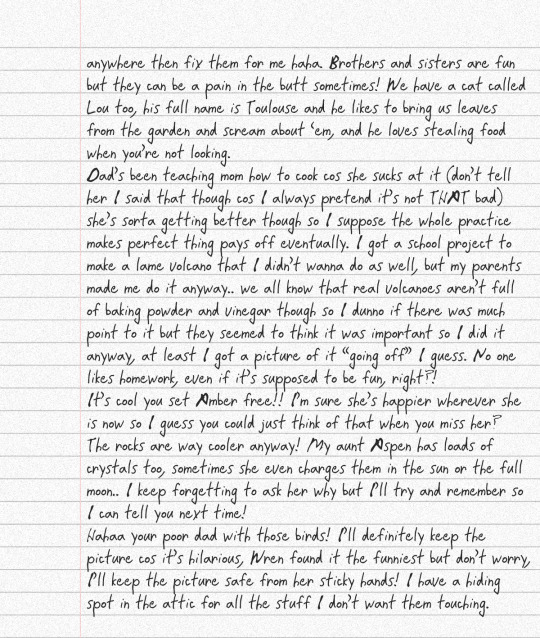 anywhere then fix them for me haha. Brothers and sisters are fun
but they can be a pain in the butt sometimes! We have a cat called
Lou too, his full name is Toulouse and he likes to bring us leaves
from the garden and scream about 'em, and he loves stealing food
when you're not looking.
Dad's been teaching mom how to cook cos she sucks at it (don't tell
her I said that though cos I always pretend it's not THAT bad)
she's sorta getting better though so I suppose the whole practice
makes perfect thing pays off eventually. I got a school project to
make a lame volcano that I didn't wanna do as well, but my parents
made me do it anyway.. we all know that real volcanoes aren't full
of baking powder and vinegar though so I dunno if there was much
point to it but they seemed to think it was important so I did it
anyway, at least I got a picture of it "going off" I guess. No one
likes homework, even if it's supposed to be fun, right?!
It's cool you set Amber free!! I'm sure she's happier wherever she
is now so I guess you could just think of that when you miss her?
The rocks are way cooler anyway! My aunt Aspen has loads of
crystals too, sometimes she even charges them in the sun or the full
moon.. I keep forgetting to ask her why but I'll try and remember so
I can tell you next time!
Hahaa your poor dad with those birds! I'll definitely keep the
picture cos it's hilarious, Wren found it the funniest but don't worry,
I'll keep the picture safe from her sticky hands! I have a hiding
spot in the attic for all the stuff I don't want them touching.